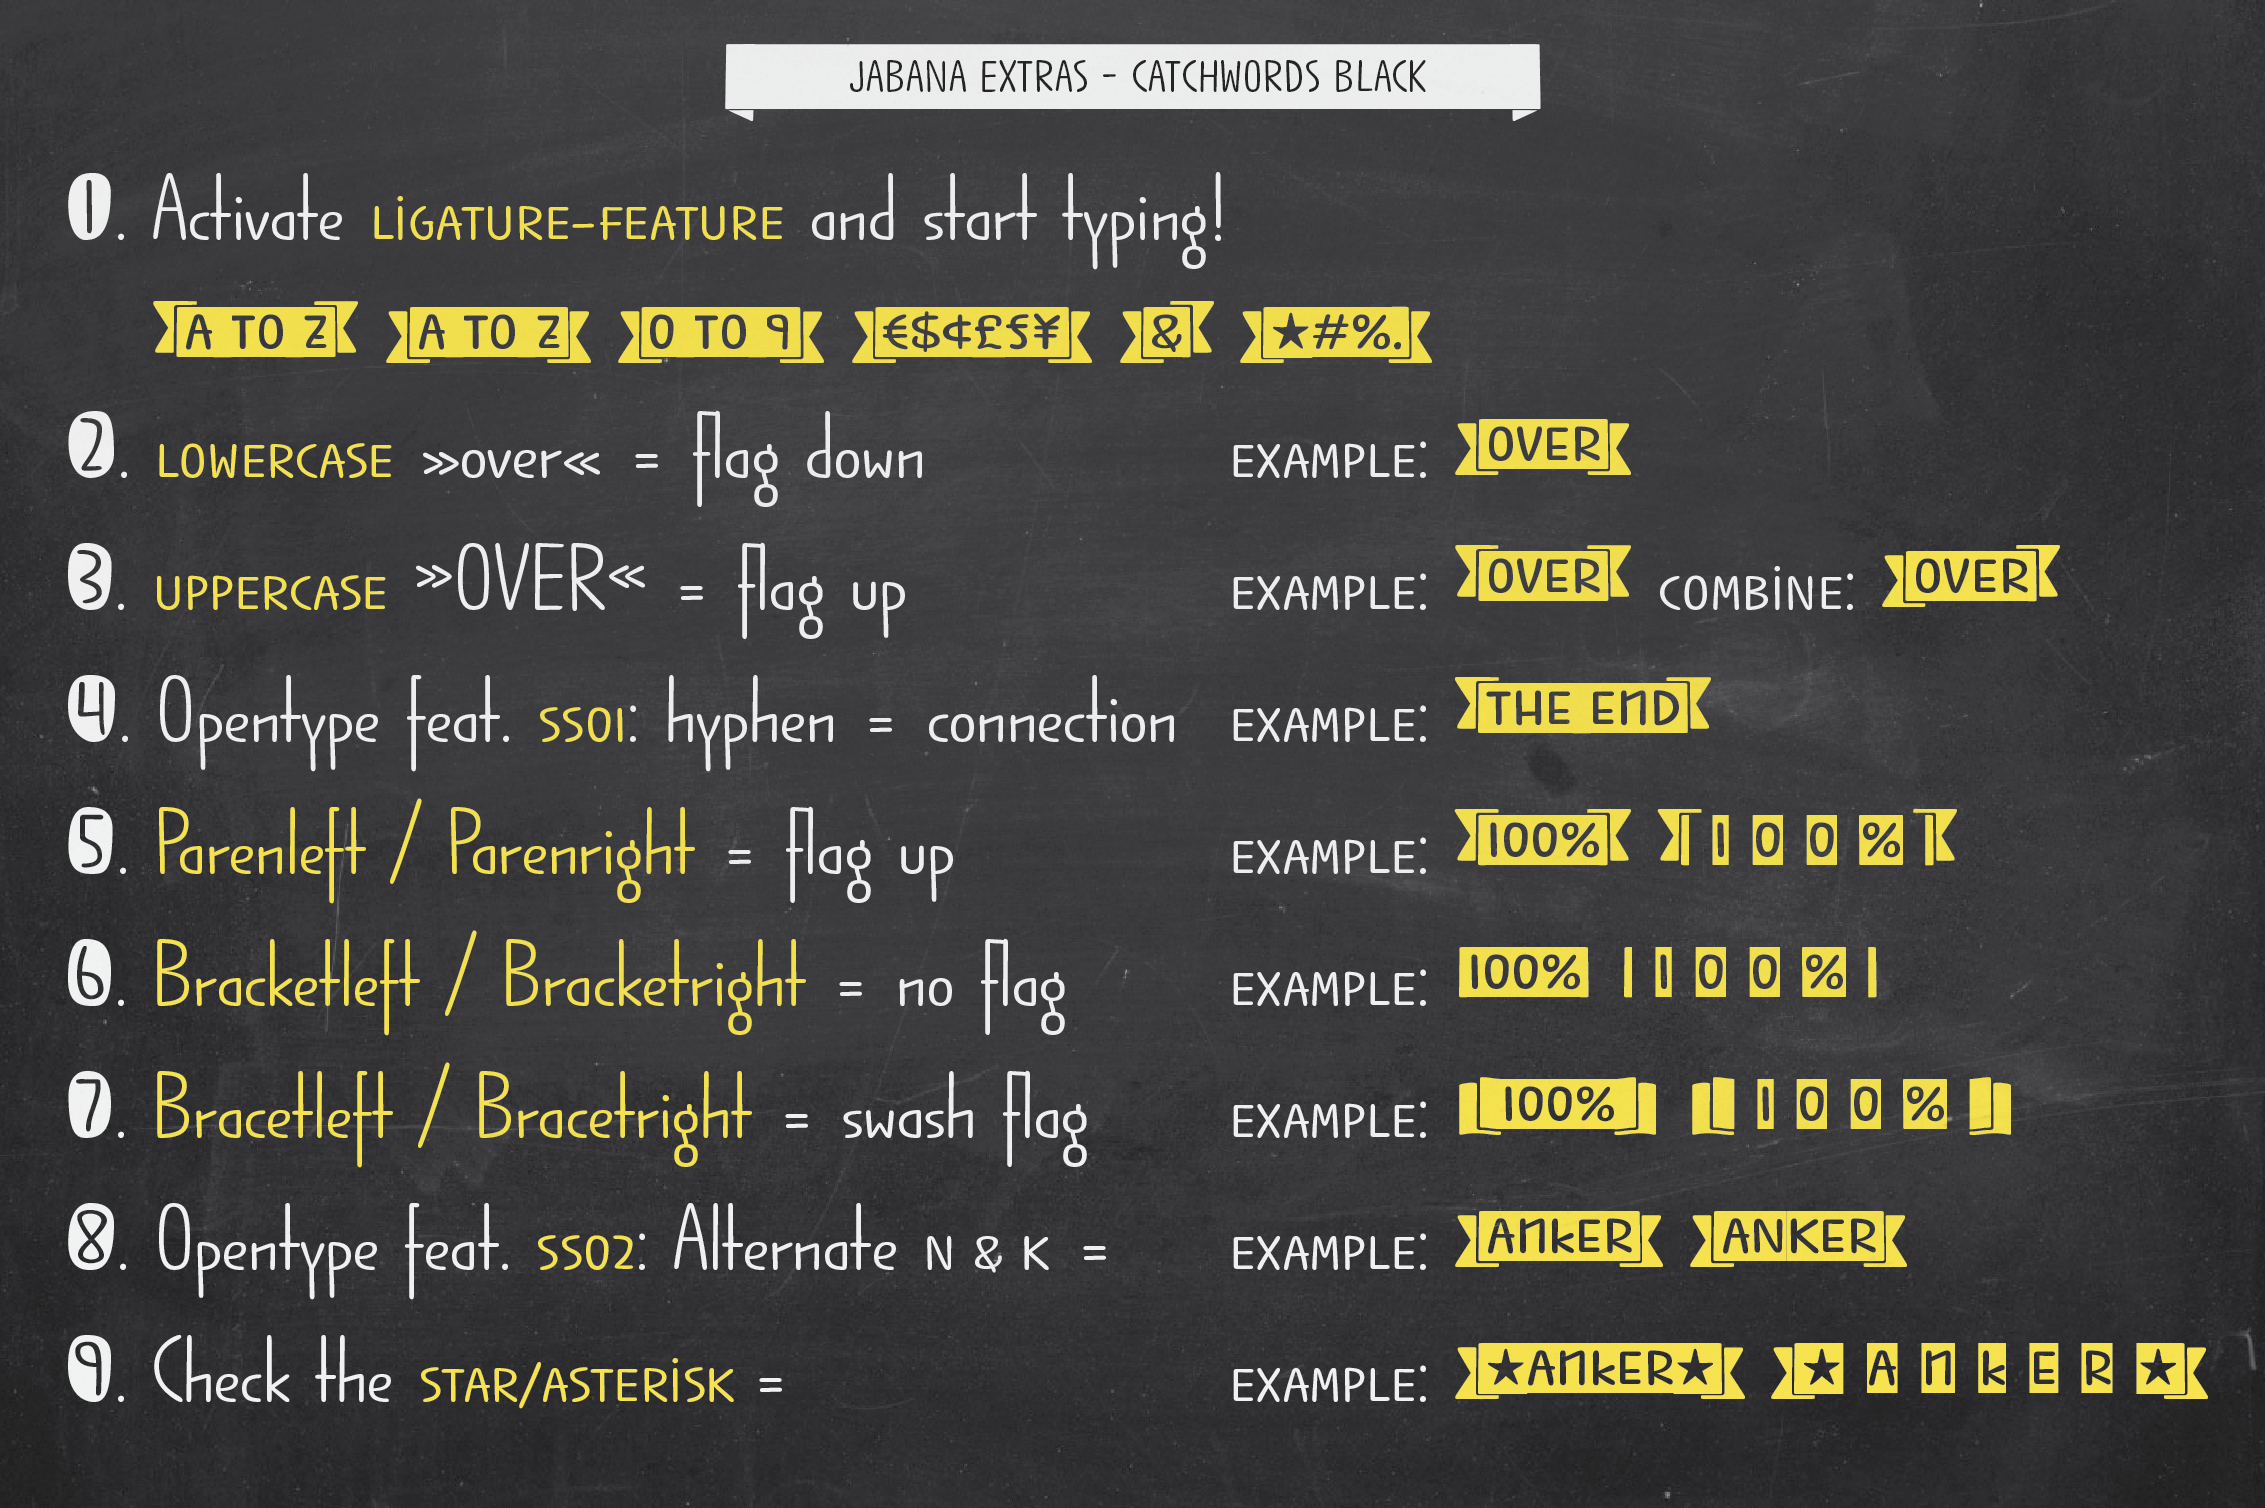 JABANA EXTRAS - CATCHWORDS BLACK
1. Activate LIGATURE-FEATURE and start typing!
A TO Z A TO Z 0 TO 9 €$¢£ƒ¥ & ★#%.
2. LOWERCASE »over« = flag down EXAMPLE: OVER
3. UPPERCASE »OVER« = flag up EXAMPLE: OVER COMBINE: OVER
4. Opentype feat. SS01: hyphen = connection EXAMPLE: THE END
5. Parenleft / Parenright = flag up EXAMPLE: 100% 1 0 0 %
6. Bracketleft / Bracketright = no flag EXAMPLE: 100% 1 0 0 %
7. Bracetleft / Bracetright = swash flag EXAMPLE: 100% 1 0 0 %
8. Opentype feat. SS02: Alternate N & K = EXAMPLE: ANKER ANKER
9. Check the STAR/ASTERISK = EXAMPLE: ★ANKER★ ★ A N K E R ★